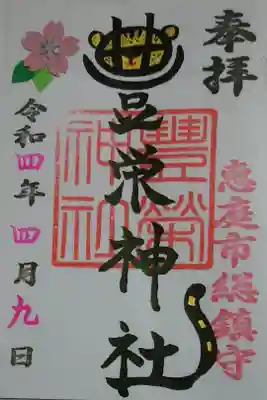 奉拝
恵庭市総鎮守
豊栄神社
豐榮神社
令和四年四月九日